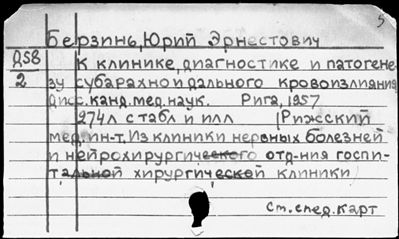 5
Берзинь, Юрий Эрнестович
Д58 К клинике, диагностике и патогене-
2 зу субарахноидального кровоизлияния
Дисс. канд. мед. наук. Рига, 1957
274л с табл и илл (Рижский
мед. ин-т. Из клиники нервных болезней
и нейрохирургического отд-ния госпи-
тальной хирургической клиники)
См. след. карт